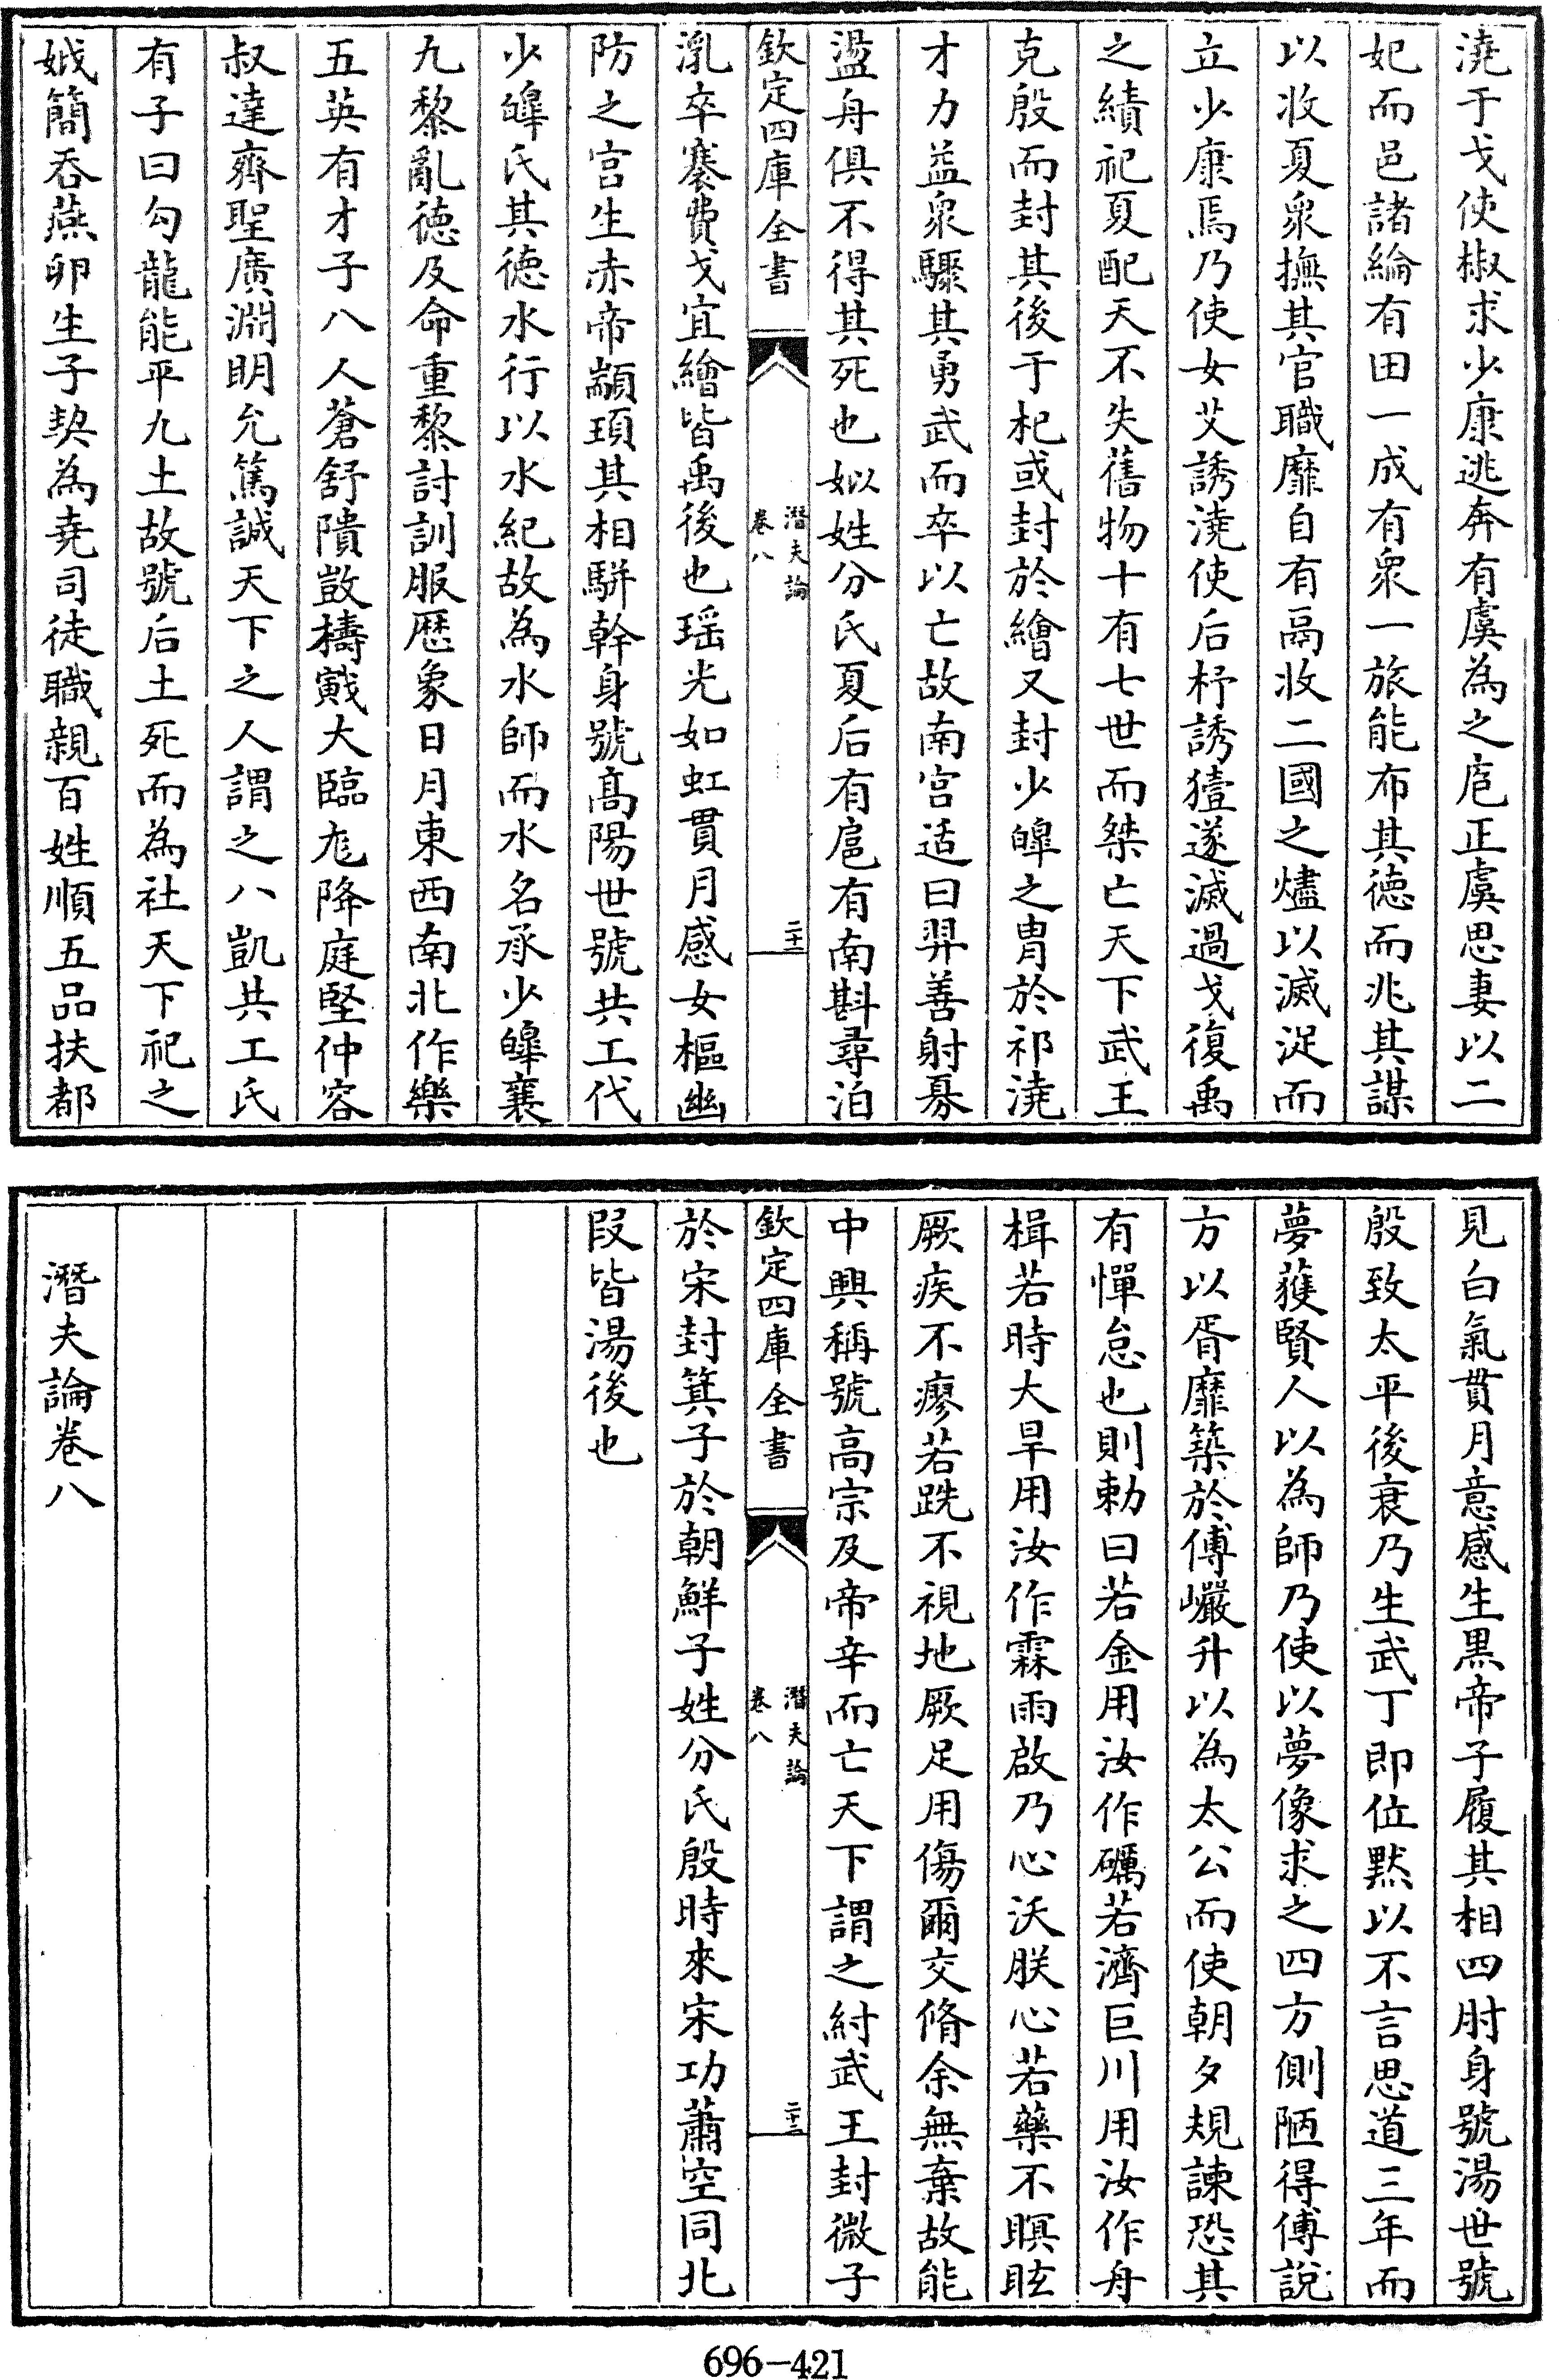 澆于戈使椒求少康逃奔有虞為之庖正虞思妻以二
妃而邑諸綸有田一成有衆一旅能布其徳而兆其謀
以收夏衆撫其官職靡自有鬲收二國之燼以滅浞而
立少康焉乃使女艾誘澆使后杼誘豷遂滅過戈復禹
之績祀夏配天不失舊物十有七世而桀亡天下武王
克殷而封其後于杞或封於繒又封少皥之胄於祁澆
才力益衆驟其勇武而卒以亡故南宫适曰羿善射奡
盪舟俱不得其死也姒姓分氏夏后有扈有南斟尋泊
欽定四庫全書
潛夫論
卷八
二十二
㴞卒褰費戈宜繒皆禹後也瑶光如虹貫月感女樞幽
防之宫生赤帝顓頊其相駢幹身號髙陽世號共工代
少皥氏其徳水行以水紀故為水師而水名承少皥襄
九黎亂徳及命重黎討訓服歴象日月東西南北作樂
五英有才子八人蒼舒隤敳檮戭大臨尨降庭堅仲容
叔達齊聖廣淵明允篤誠天下之人謂之八凱共工氏
有子曰勾龍能平九土故號后土死而為社天下祀之
娀簡吞燕卵生子契為堯司徒職親百姓順五品扶都
見白氣貫月意感生黒帝子履其相四肘身號湯世號
殷致太平後衰乃生武丁即位黙以不言思道三年而
夢獲賢人以為師乃使以夢像求之四方側陋得傅說
方以胥靡築於傅巖升以為太公而使朝夕規諫恐其
有憚怠也則勅曰若金用汝作礪若濟巨川用汝作舟
楫若時大旱用汝作霖雨啟乃心沃朕心若藥不瞑眩
厥疾不瘳若跣不視地厥足用傷爾交脩余無棄故能
中興稱號高宗及帝辛而亡天下謂之紂武王封微子
欽定四庫全書
潛夫論
卷八
二十三
於宋封箕子於朝鮮子姓分氏殷時來宋功蕭空同北
段皆湯後也
潛夫論卷八
696-421